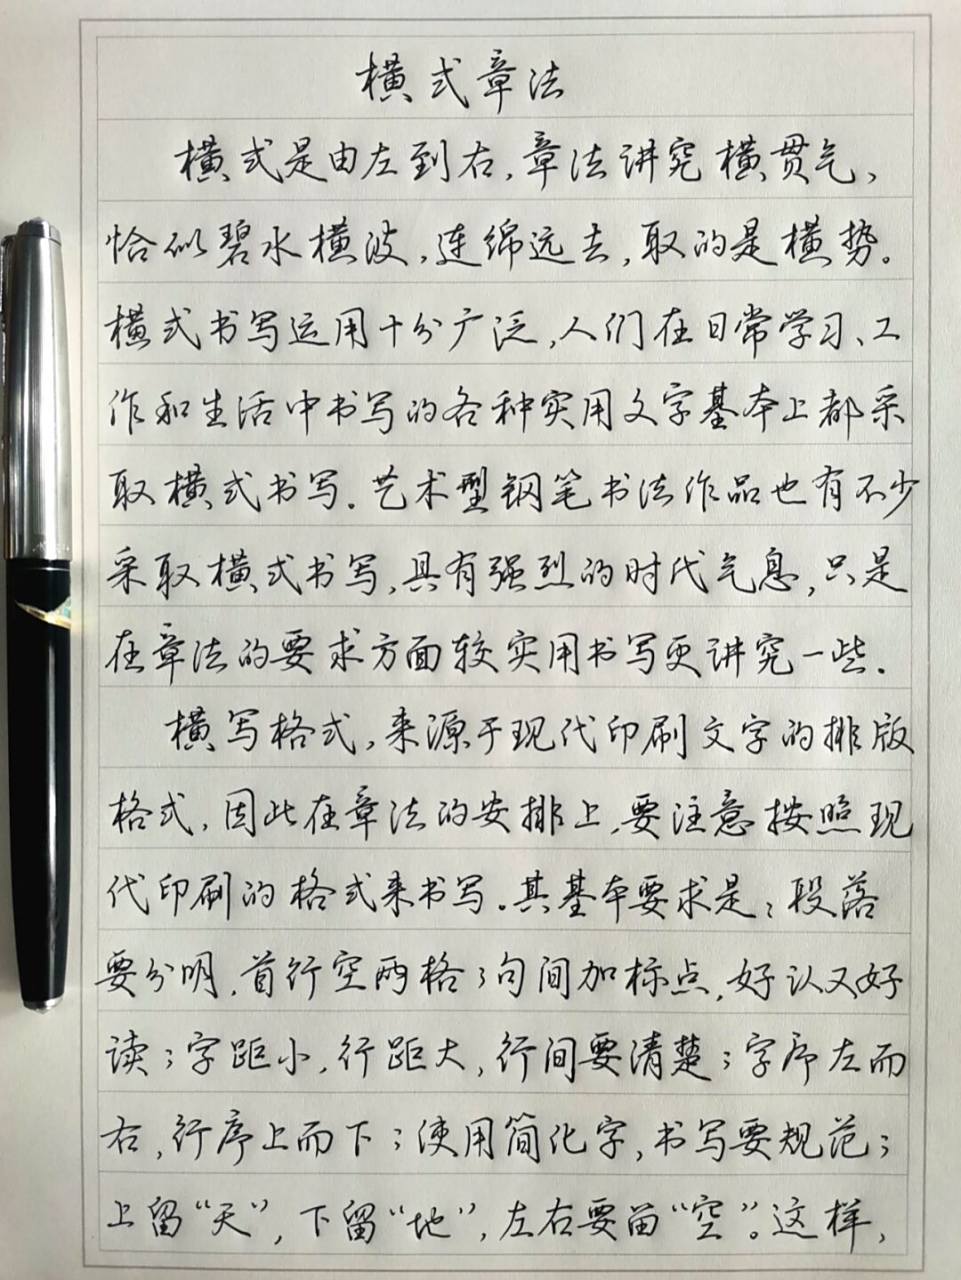 横式章法
横式是由左到右,章法讲究横贯气,
恰似碧水横波,连绵远去,取的是横势。
横式书写运用十分广泛,人们在日常学习、工
作和生活中书写的各种实用文字基本上都采
取横式书写。艺术型钢笔书法作品也有不少
采取横式书写,具有强烈的时代气息,只是
在章法的要求方面较实用书写更讲究一些.
横写格式,来源于现代印刷文字的排版
格式,因此在章法的安排上,要注意按照现
代印刷的格式来书写。其基本要求是:段落
要分明,首行空两格;句间加标点,好认又好
读;字距小,行距大,行间要清楚;字序左而
右,行序上而下;使用简化字,书写要规范;
上留“天”,下留“地”,左右要留“空”。这样,